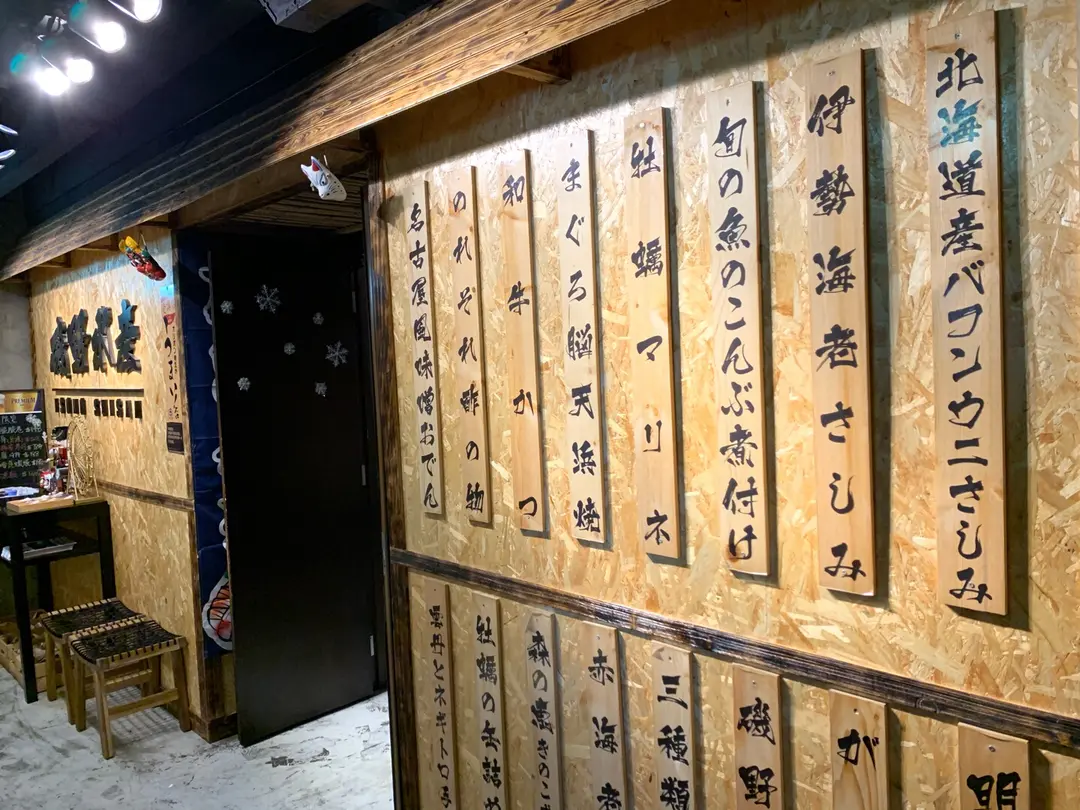 北海道産バフンウニさしみ
伊勢海老さしみ
旬の魚のこんぶ煮付け
牡蠣マリネ
まぐろ脳天浜焼
和牛かつ
のれそれ酢の物
名古屋風味噌おでん
明
が
磯野
三種類
赤海老
森の
牡蠣の缶詰め
雲丹とネギトロ手
PREMIUM